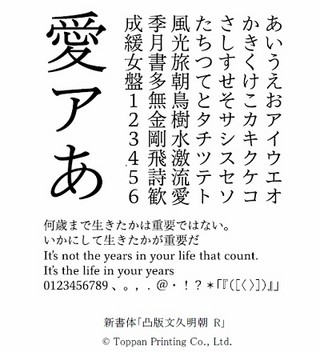 あいうえおアイウエオ
かきくけこカキクケコ
さしすせそサシスセソ
たちつてとタチツテト
風光旅朝鳥樹水激流愛
季月書多無金剛飛詩歓
成緩女盤123456
愛アあ
何歳まで生きたかは重要ではない。
いかにして生きたかが重要だ
It's not the years in your life that count.
It's the life in your years
0123456789 、。，．@・！？*「『([〈〉])』」
新書体「凸版文久明朝 R」
© Toppan Printing Co., Ltd.